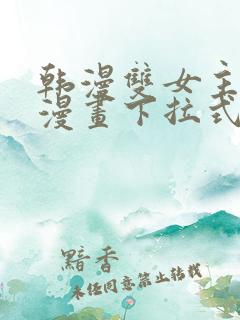 韩漫雙女主
漫畫下拉式
黯香
未经同意禁止转载